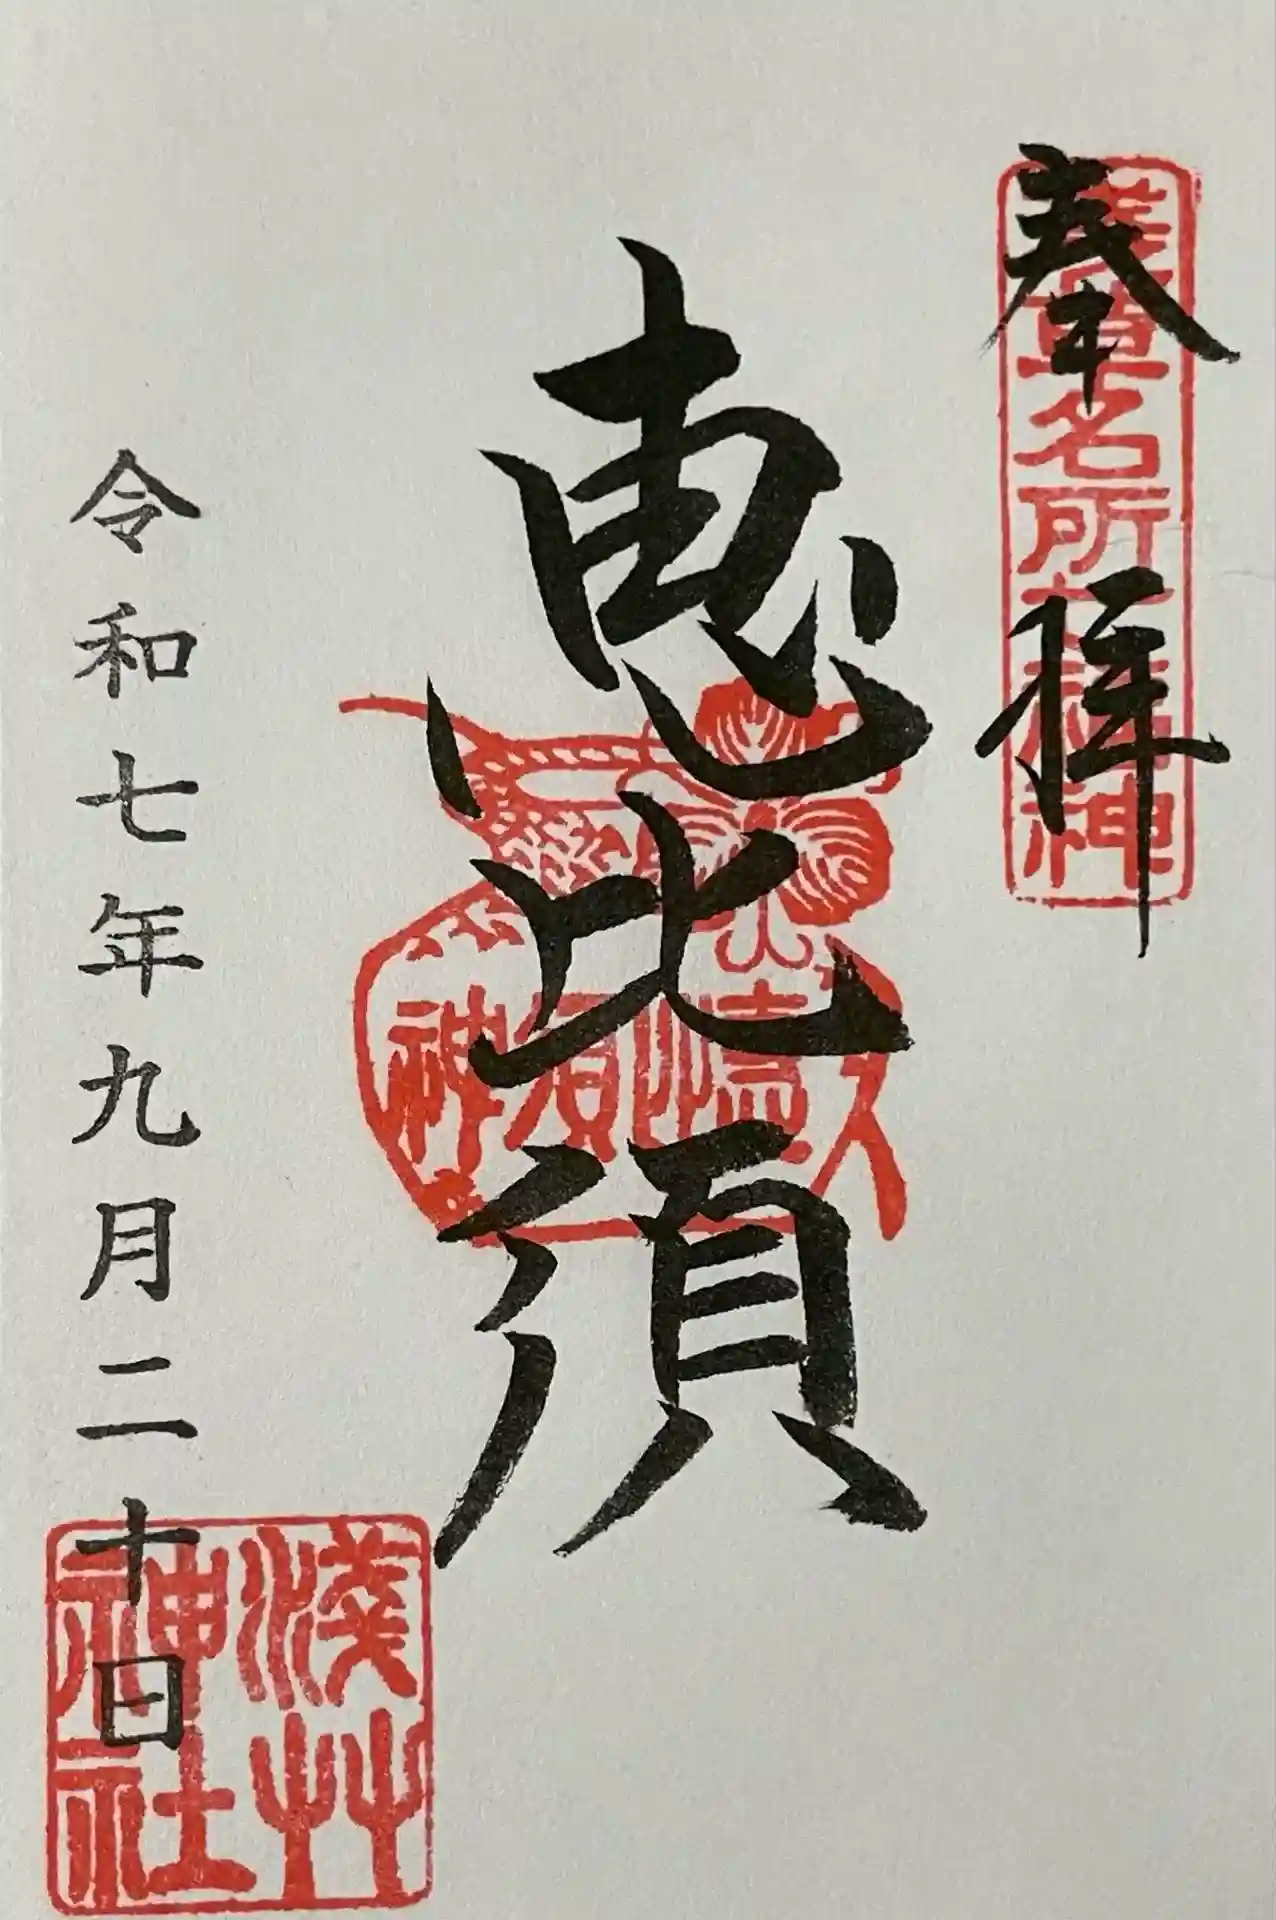 奉拝
浅草名所七福神
恵比須
恵比須神
令和七年九月二十日
浅草神社